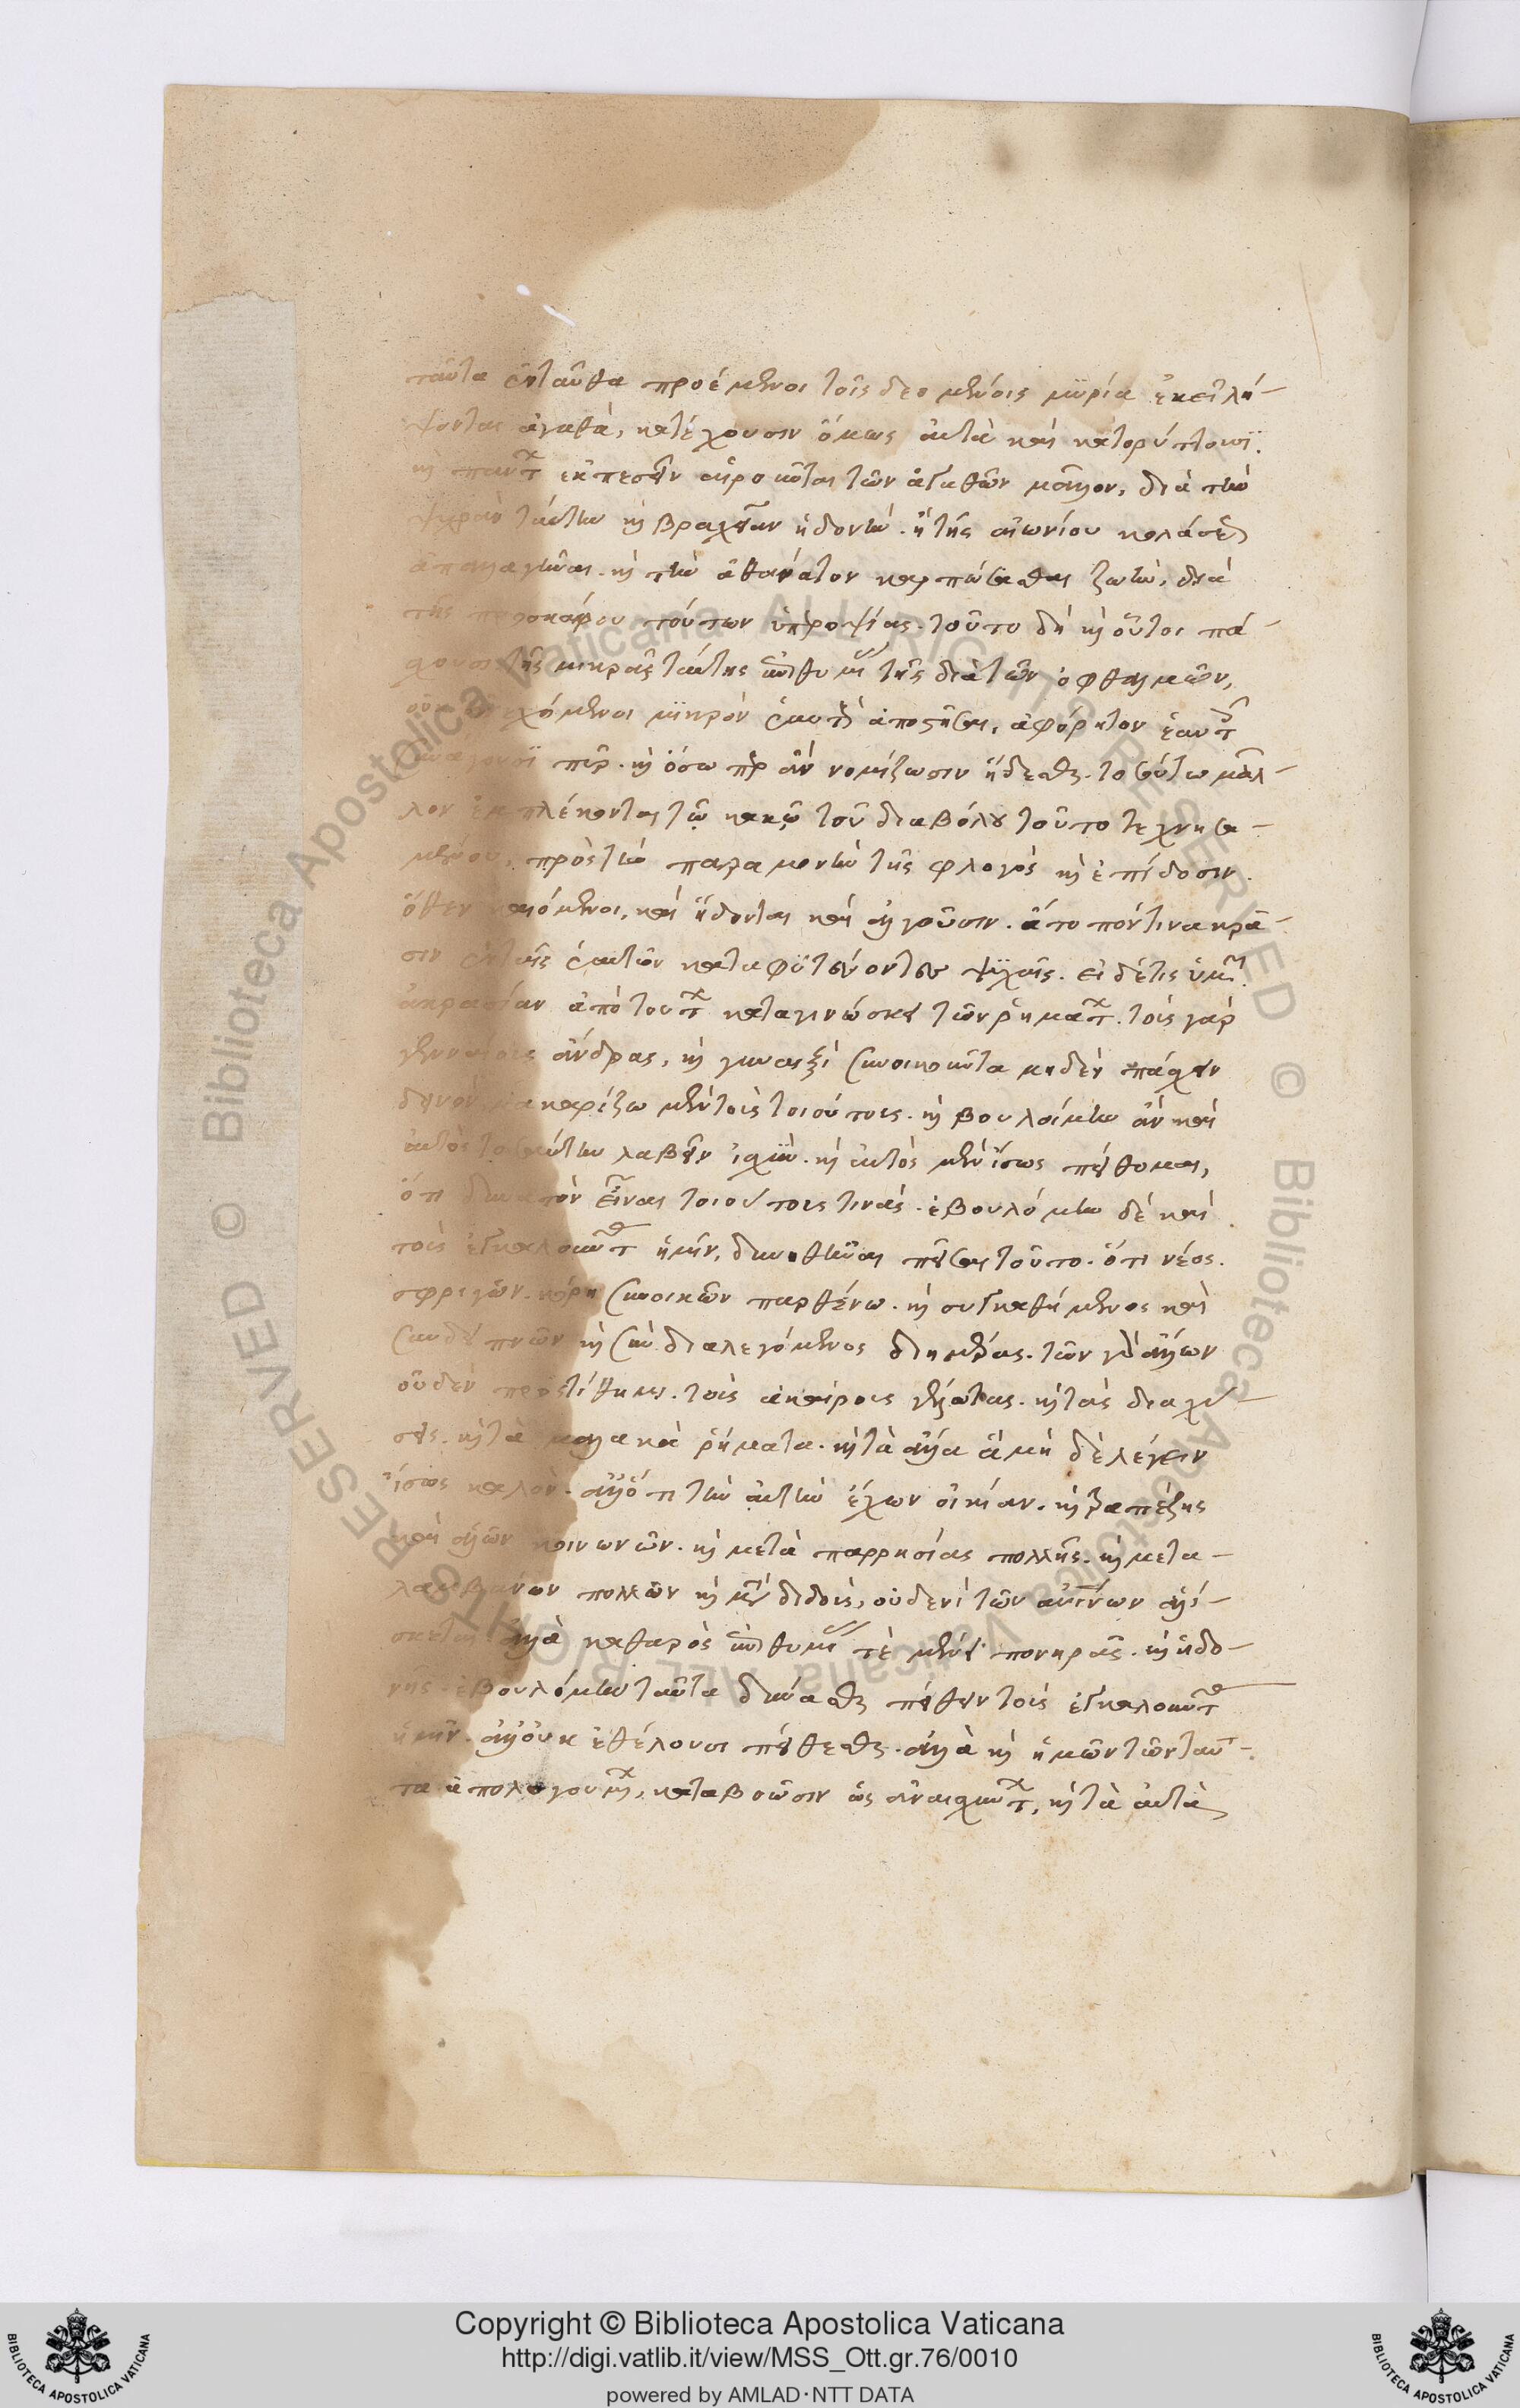 ταῦτα ἐνταῦθα προέμενοι τοῖς δεομένοις μυρία ἐκεῖ λή-
ψονται ἀγαθὰ, κατέχουσιν ὅμως αὐτὰ καὶ κατορύττουσι.
καὶ πάντ ἐκπεσεῖν αἱροῦνται τῶν ἀγαθῶν μᾶλλον, διὰ τὴν
ψυχρὰν ταύτην καὶ βραχεῖαν ἡδονὴν. ἢ τῆς αἰωνίου κολάσεως
ἀπαλλαγῆναι. καὶ τὴν ἀθάνατον καρπώσασθαι ζωὴν, διὰ
τῆς προσκαίρου τούτων ὑπεροψίας. τοῦτο δὴ καὶ οὗτοι πά-
σχουσι τῆς μικρᾶς ταύτης ἐπιθυμίας τῆς διὰ τῶν ὀφθαλμῶν,
οὐκ ἀνεχόμενοι μικρὸν ἑαυτοὺς ἀποστῆσαι, ἀφόρητον ἑαυτοῖς
ἀνάγουσι πῦρ. καὶ ὅσω περ ἂν νομίζωσιν ἥδεσθαι. τοσούτω μᾶλ-
λον ἐμπλέκονται τῷ κακῷ τοῦ διαβόλου τοῦτο τεχνησα-
μένου, πρὸς τὴν παραμονὴν τῆς φλογὸς καὶ ἐπίδοσιν.
ὅθεν καιόμενοι, καὶ ἥδονται καὶ ἀλγοῦσιν. ἄτοπόν τινα κρᾶ-
σιν ἐν ταῖς ἑαυτῶν καταφυτεύοντες ψυχαῖς. εἰ δέ τις ὑμῖν
ἀκρασίαν ἀπὸ τούτων καταγινώσκει τῶν ῥημάτων. τοὺς γὰρ
γενναίους ἄνδρας, καὶ γυναιξὶ συνοικοῦντα μηδὲν πάσχειν
δεινὸν, μακαρίζω μὲν τοὺς τοιούτους. καὶ βουλοίμην ἂν καὶ
αὐτὸς τοσαύτην λαβεῖν ἰσχὺν. καὶ αὐτὸς μὲν ἴσως πείθομαι,
ὅτι δυνατὸν εἶναι τοιούτους τινάς. ἐβουλόμην δὲ καὶ
τοὺς ἐγκαλοῦντας ἡμῖν, δυνηθῆναι πεῖσαι τοῦτο. ὅτι νέος.
σφριγῶν. κόρη συνοικῶν παρθένω. καὶ συγκαθήμενος καὶ
συνδειπνῶν καὶ συνδιαλεγόμενος δι ἡμέρας. τῶν γὰρ ἄλλων
οὐδὲν προστίθημι. τοὺς ἀκαίρους γέλωτας. καὶ τὰς διαχύ-
σεις. καὶ τὰ μαλακὰ ῥήματα. καὶ τὰ ἄλλα ἃ μὴ δὲ λέγειν
ἴσως καλὸν. ἀλλ ὅτι τὴν αὐτὴν ἔχων οἰκίαν. καὶ τραπέζης
καὶ ἁλῶν κοινωνῶν. καὶ μετὰ παρρησίας πολλῆς. καὶ μετα-
λαμβάνων πολλῶν καὶ μεταδιδοὺς, οὐδενὶ τῶν ἀνθρωπίνων ἁλί-
σκεται. ἀλλὰ καθαρὸς ἐπιθυμίας τὲ μένει πονηρᾶς. καὶ ἡδο-
νῆς. ἐβουλόμην ταῦτα δύνασθαι πείθειν τοὺς ἐγκαλοῦντας
ἡμῖν. ἀλλ οὐκ ἐθέλουσι πείθεσθαι. ἀλλὰ καὶ ἡμῶν τῶν ταῦ-
τα ἀπολογουμένων, καταβοῶσιν ὡς ἀναισχύντων, καὶ τὰ αὐτὰ
Copyright © Biblioteca Apostolica Vaticana
http://digi.vatlib.it/view/MSS_Ott.gr.76/0010
powered by AMLAD·NTT DATA